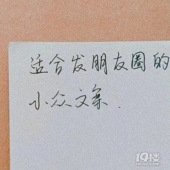 适合发朋友圈的
小众文案.
19楼